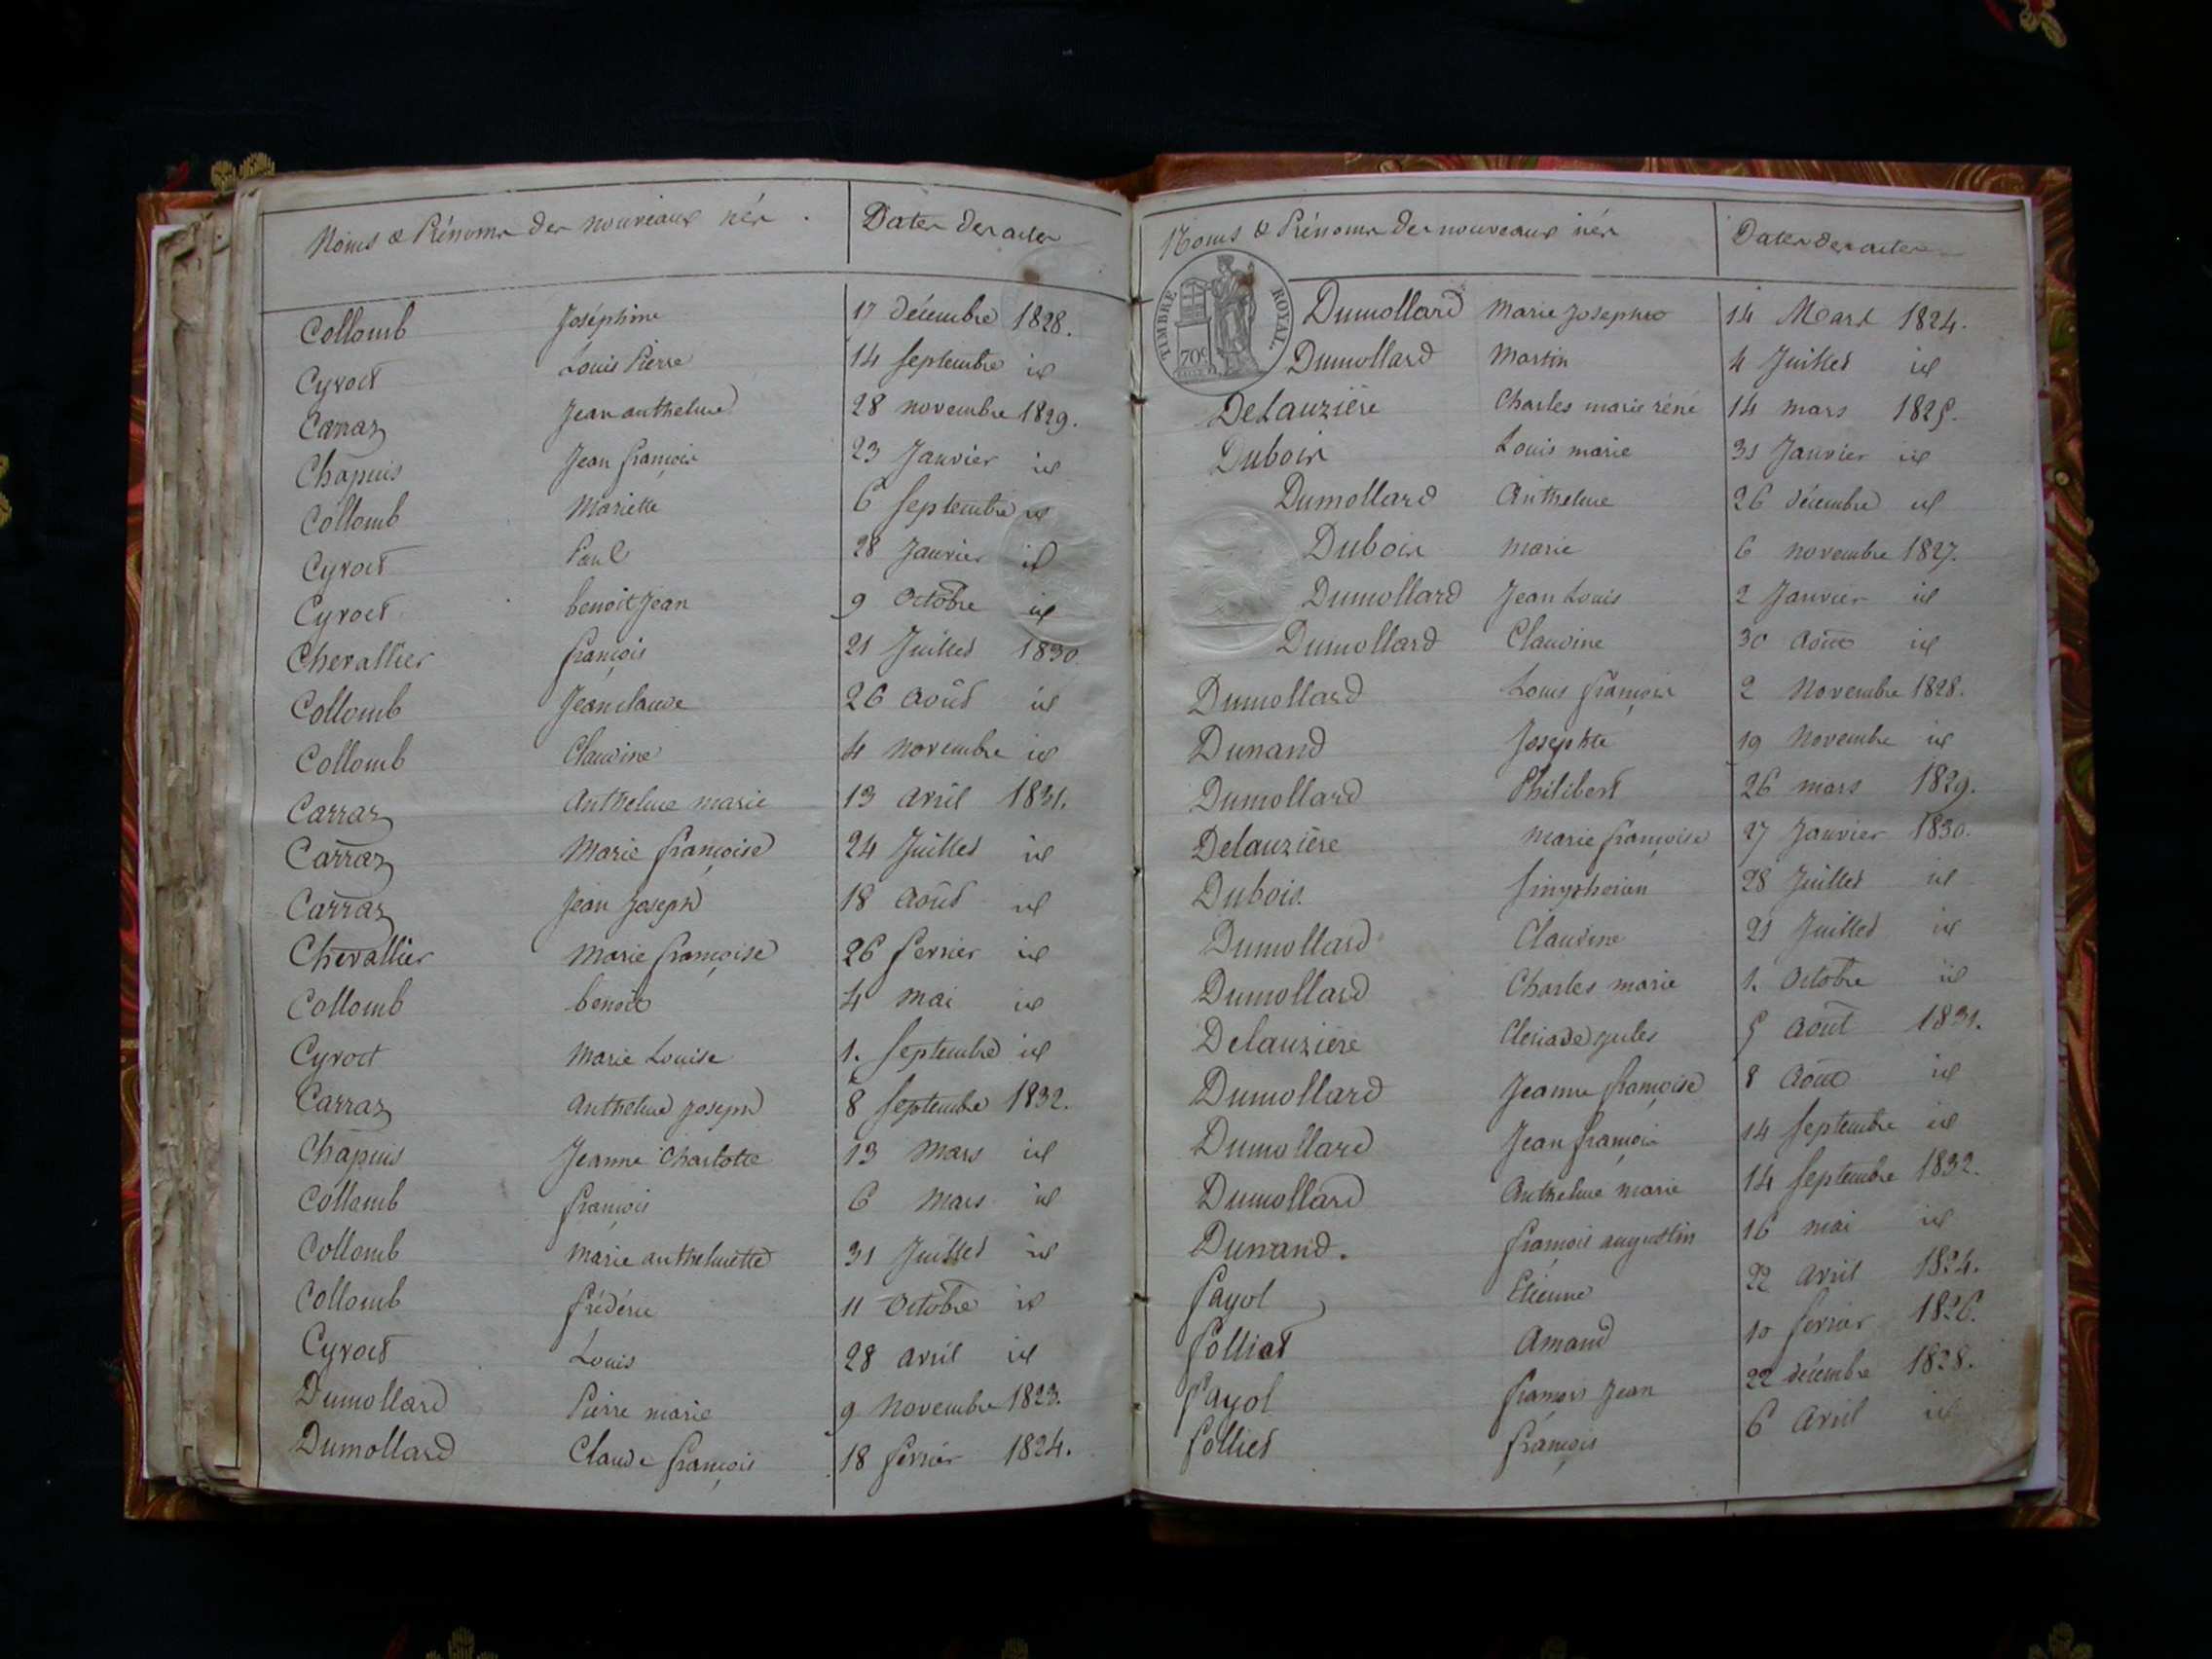 Noms & Prénoms des nouveaux nés . Dates des actes
Collomb Joséphine 17 décembre 1828.
Cyroct Louis Pierre 14 septembre id
Carraz Jean anthelme 28 novembre 1829.
Chapuis Jean françois 23 Janvier id
Collomb Mariette 6 septembre id
Cyroct Paul 28 Janvier id
Cyroct benoit Jean 9 Octobre id
Chevallier françois 21 Juillet 1830.
Collomb Jean claude 26 Août id
Collomb Claudine 4 novembre id
Carraz Anthelme marie 13 avril 1831.
Carraz Marie françoise 24 Juillet id
Carraz Jean Joseph 18 Août id
Chevallier Marie françoise 26 fevrier id
Collomb benoit 4 mai id
Cyroct Marie Louise 1. Septembre id
Carraz Anthelme Joseph 8 Septembre 1832.
Chapuis Jeanne Charlotte 13 Mars id
Collomb françois 6 Mars id
Collomb Marie anthelmette 31 Juillet id
Collomb frédéric 11 Octobre id
Cyroct Louis 28 avril id
Dumollard Pierre marie 9 Novembre 1823.
Dumollard Claude françois 18 fevrier 1824.
Noms & Prénoms des nouveaux nés Dates des actes
TIMBRE ROYAL.
70c
Dumollard Marie Josephte 14 Mars 1824.
Dumollard Martin 4 Juillet id
Delauzière Charles marie réné 14 mars 1825.
Dubois Louis marie 31 Janvier id
Dumollard Anthelme 26 décembre id
Dubois Marie 6 novembre 1827.
Dumollard Jean Louis 2 Janvier id
Dumollard Claudine 30 Août id
Dumollard Louis françois 2 Novembre 1828.
Dunand Josephte 19 Novembre id
Dumollard Philibert 26 mars 1829.
Delauzière Marie françoise 27 Janvier 1830.
Dubois. 28 Juillet id
Dumollard Claudine 21 Juillet id
Dumollard Charles marie 1. Octobre id
Delauzière Jules 5 Août 1831.
Dumollard Jeanne françoise 8 Août id
Dumollard Jean françois 14 Septembre id
Dumollard Anthelme marie 14 septembre 1832.
Dunand. françois augustin 16 mai id
fayol Etienne 22 avril 1824.
folliet Amand 10 fevrier 1826.
fayol françois Jean 22 décembre 1828.
folliet françois 6 Avril id